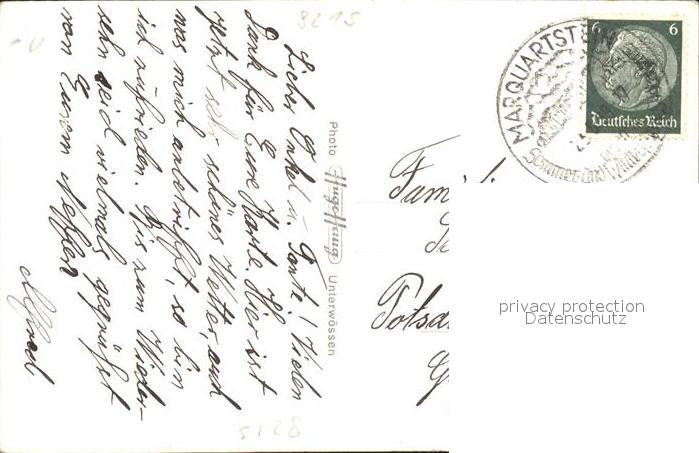 8215
Lieber Onkel u. Tante! Vielen
Dank für Eure Karte. Hier ist
jetzt sehr schönes Wetter, und
was mich anbetrifft, so bin
ich zufrieden. Bis zum Wieder-
sehn seid vielmals gegrüßt
von Eurem Neffen
Alfred
Photo Hugo Haug Unterwössen
8215
MARQUARTST
Sommer und
6 6
Deutsches Reich
Famili
Potsda
privacy protection
Datenschutz